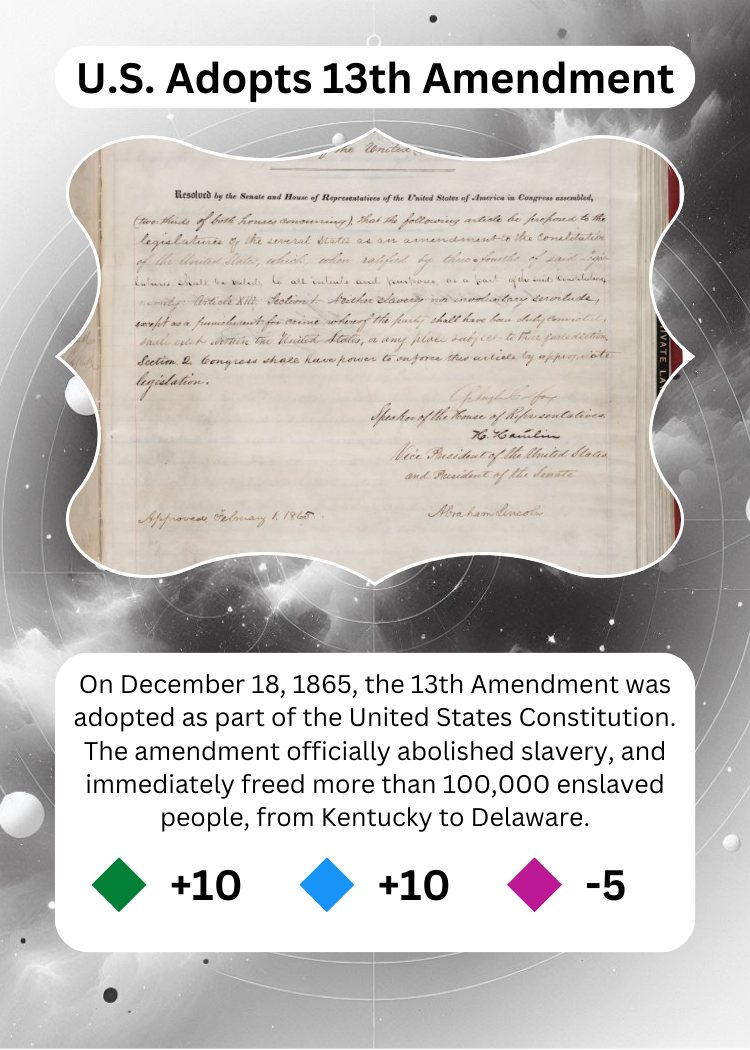 U.S. Adopts 13th Amendment
of the United
Resolved by the Senate and House of Representatives of the United States of America in Congress assembled,
(two-thirds of both houses concurring), That the following article be proposed to the
legislatures of the several States as an amendment to the Constitution
of the United States, which, when ratified by three-fourths of said
shall be valid, to all intents and purposes, as a part of the said Constitution,
namely: Article XIII. Section 1. Neither slavery nor involuntary servitude,
except as a punishment for crime whereof the party shall have been duly convicted,
shall exist within the United States, or any place subject to their jurisdiction.
Section 2. Congress shall have power to enforce this article by appropriate
legislation.
Speaker of the House of Representatives
H. Hamlin
Vice President of the United States
and President of the Senate
Approved February 1. 1865.
Abraham Lincoln
On December 18, 1865, the 13th Amendment was
adopted as part of the United States Constitution.
The amendment officially abolished slavery, and
immediately freed more than 100,000 enslaved
people, from Kentucky to Delaware.
+10 +10 -5